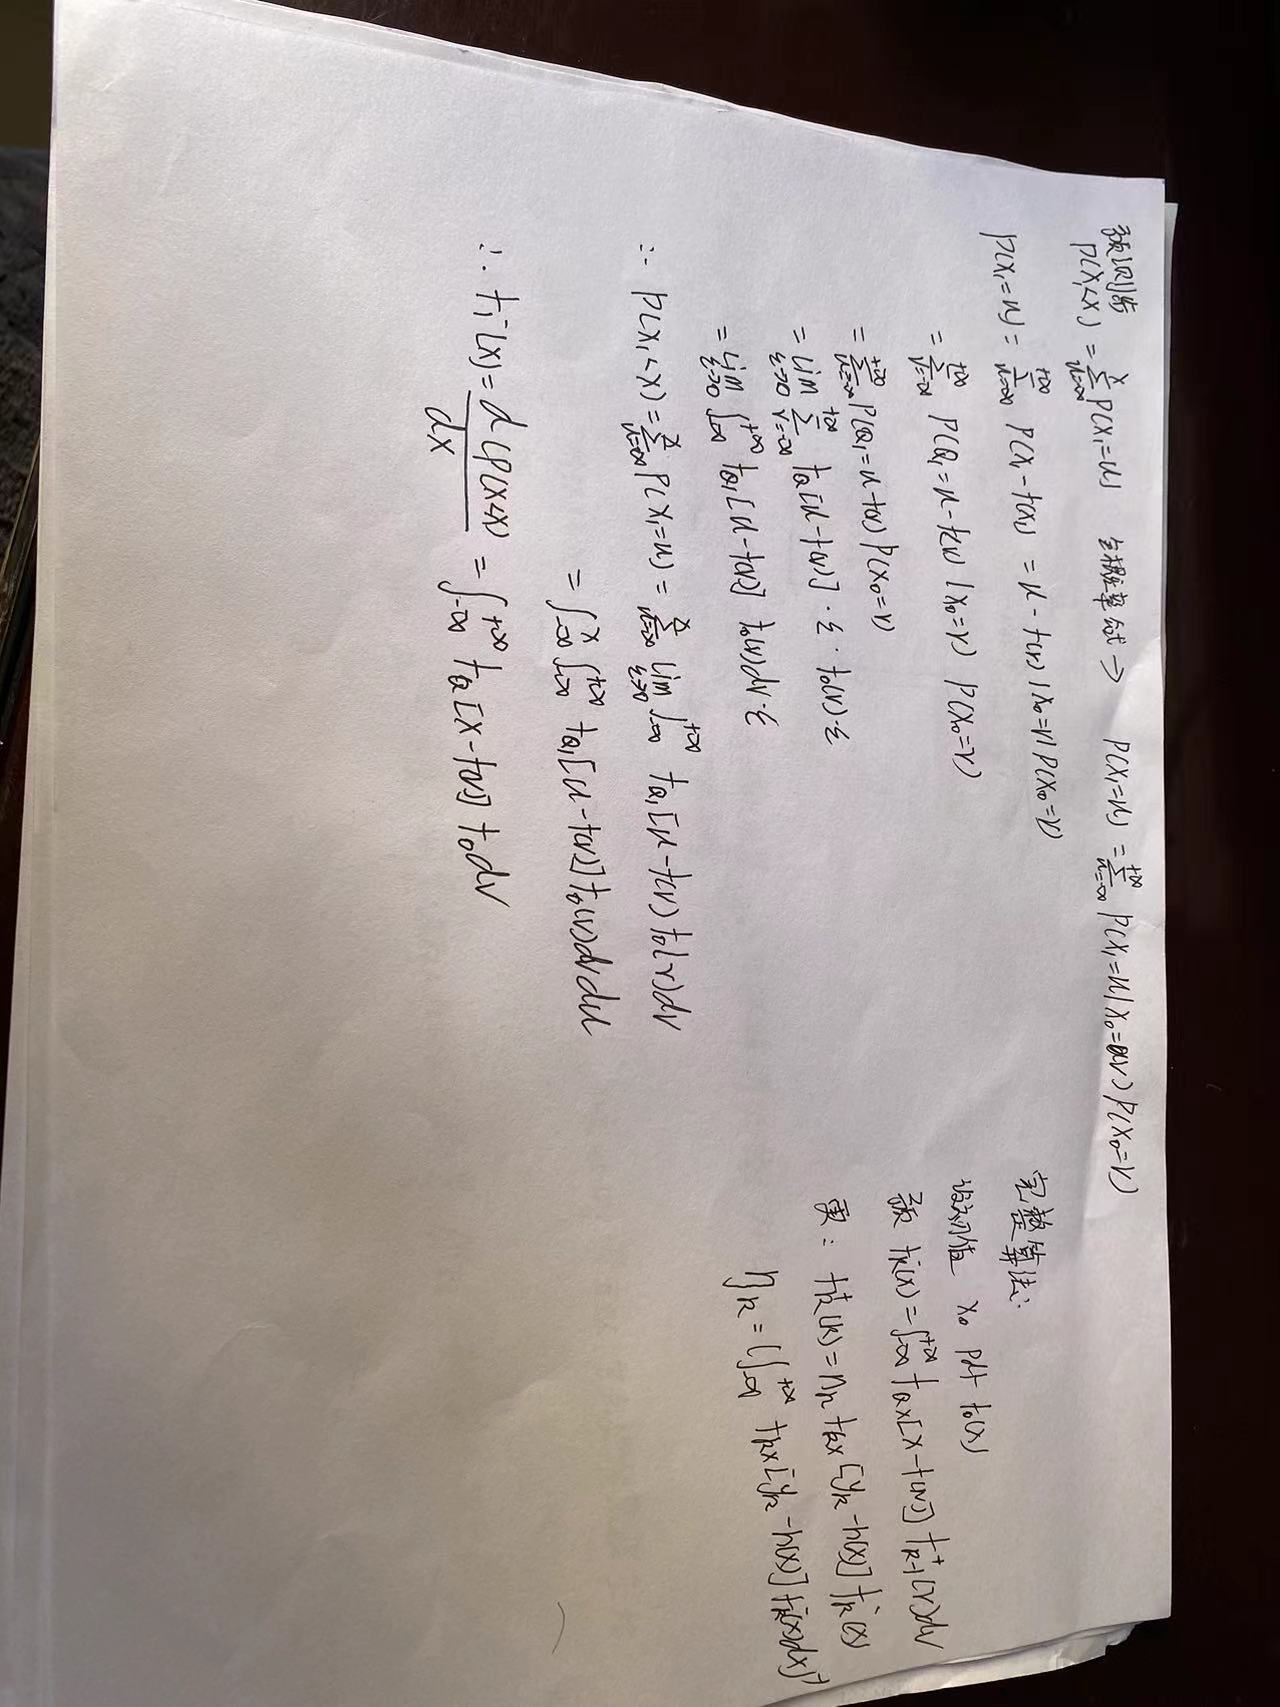 预测步
P(X₁<x) = Σ_{u=-∞}^{x} P(X₁=u) 全概率公式 → P(X₁=u) = Σ_{u=-∞}^{+∞} P(X₁=u|X₀=v) P(X₀=v)
P(X₁=u) = Σ_{u=-∞}^{+∞} P(X₁-f(X₀) = u-f(v) | X₀=v) P(X₀=v)
= Σ_{v=-∞}^{+∞} P(Q₁=u-f(v) | X₀=v) P(X₀=v)
= Σ_{u=-∞}^{+∞} P(Q₁=u-f(v)) P(X₀=v)
= lim_{ε→0} Σ_{v=-∞}^{+∞} f_Q[u-f(v)]·ε·f₀(v)·ε
= lim_{ε→0} ∫_{-∞}^{+∞} f_{Q₁}[u-f(v)] f₀(v)dv·ε
∴ P(X₁<x) = Σ_{u=-∞}^{x} P(X₁=u) = Σ_{u=-∞}^{x} lim_{ε→0} ∫_{-∞}^{+∞} f_{Q₁}[u-f(v) f₀(v)dv
= ∫_{-∞}^{x} ∫_{-∞}^{+∞} f_{Q₁}[u-f(v)] f₀(v)dvdu
∴ f₁⁻(x) = d(P(X<x) / dx = ∫_{-∞}^{+∞} f_Q[x-f(v)] f₀dv
完整算法:
设初值 X₀ pdf f₀(x)
预 f_k⁻(x) = ∫_{-∞}^{+∞} f_{Qk}[x-f(v)] f_{k-1}^{+}(v)dv
更: f_k⁺(x) = η_k f_{Rk}[y_k-h(x)] f_k⁻(x)
η_k = (∫_{-∞}^{+∞} f_{Rk}[y_k-h(x)] f_k⁻(x)dx)⁻¹